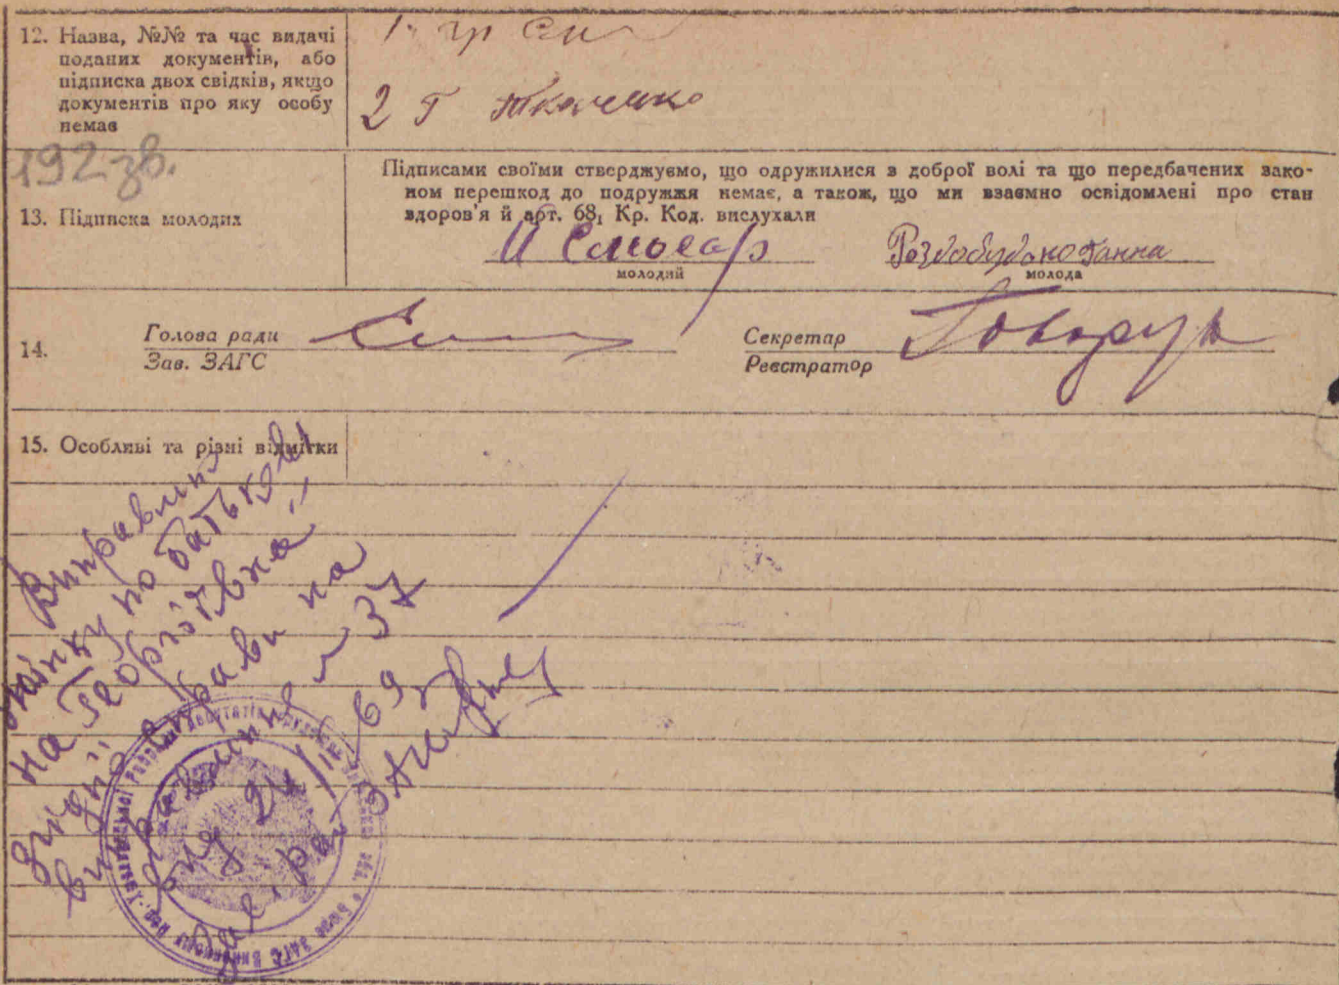 12. Назва, №№ та час видачі
поданих документів, або
підписка двох свідків, якщо
документів про яку особу
немає
1. гр
2 Г Ткаченко
192 зв.
13. Підписка молодих
Підписами своїми стверджуємо, що одружилися з доброї волі та що передбачених зако-
ном перешкод до подружжя немає, а також, що ми взаємно освідомлені про стан
здоров'я й арт. 68₁ Кр. Код. вислухали
И Слюсар
молодий
Роздобудько Ганна
молода
14.
Голова ради
Зав. ЗАГС
Секретар
Реєстратор
Говорун
15. Особливі та різні відмітки
Виправлять
жінку по батькові
на Георгіївна"
згідно справи на
виправлення № 37
від 21/ 69 р
Зав. рай ЗАГС